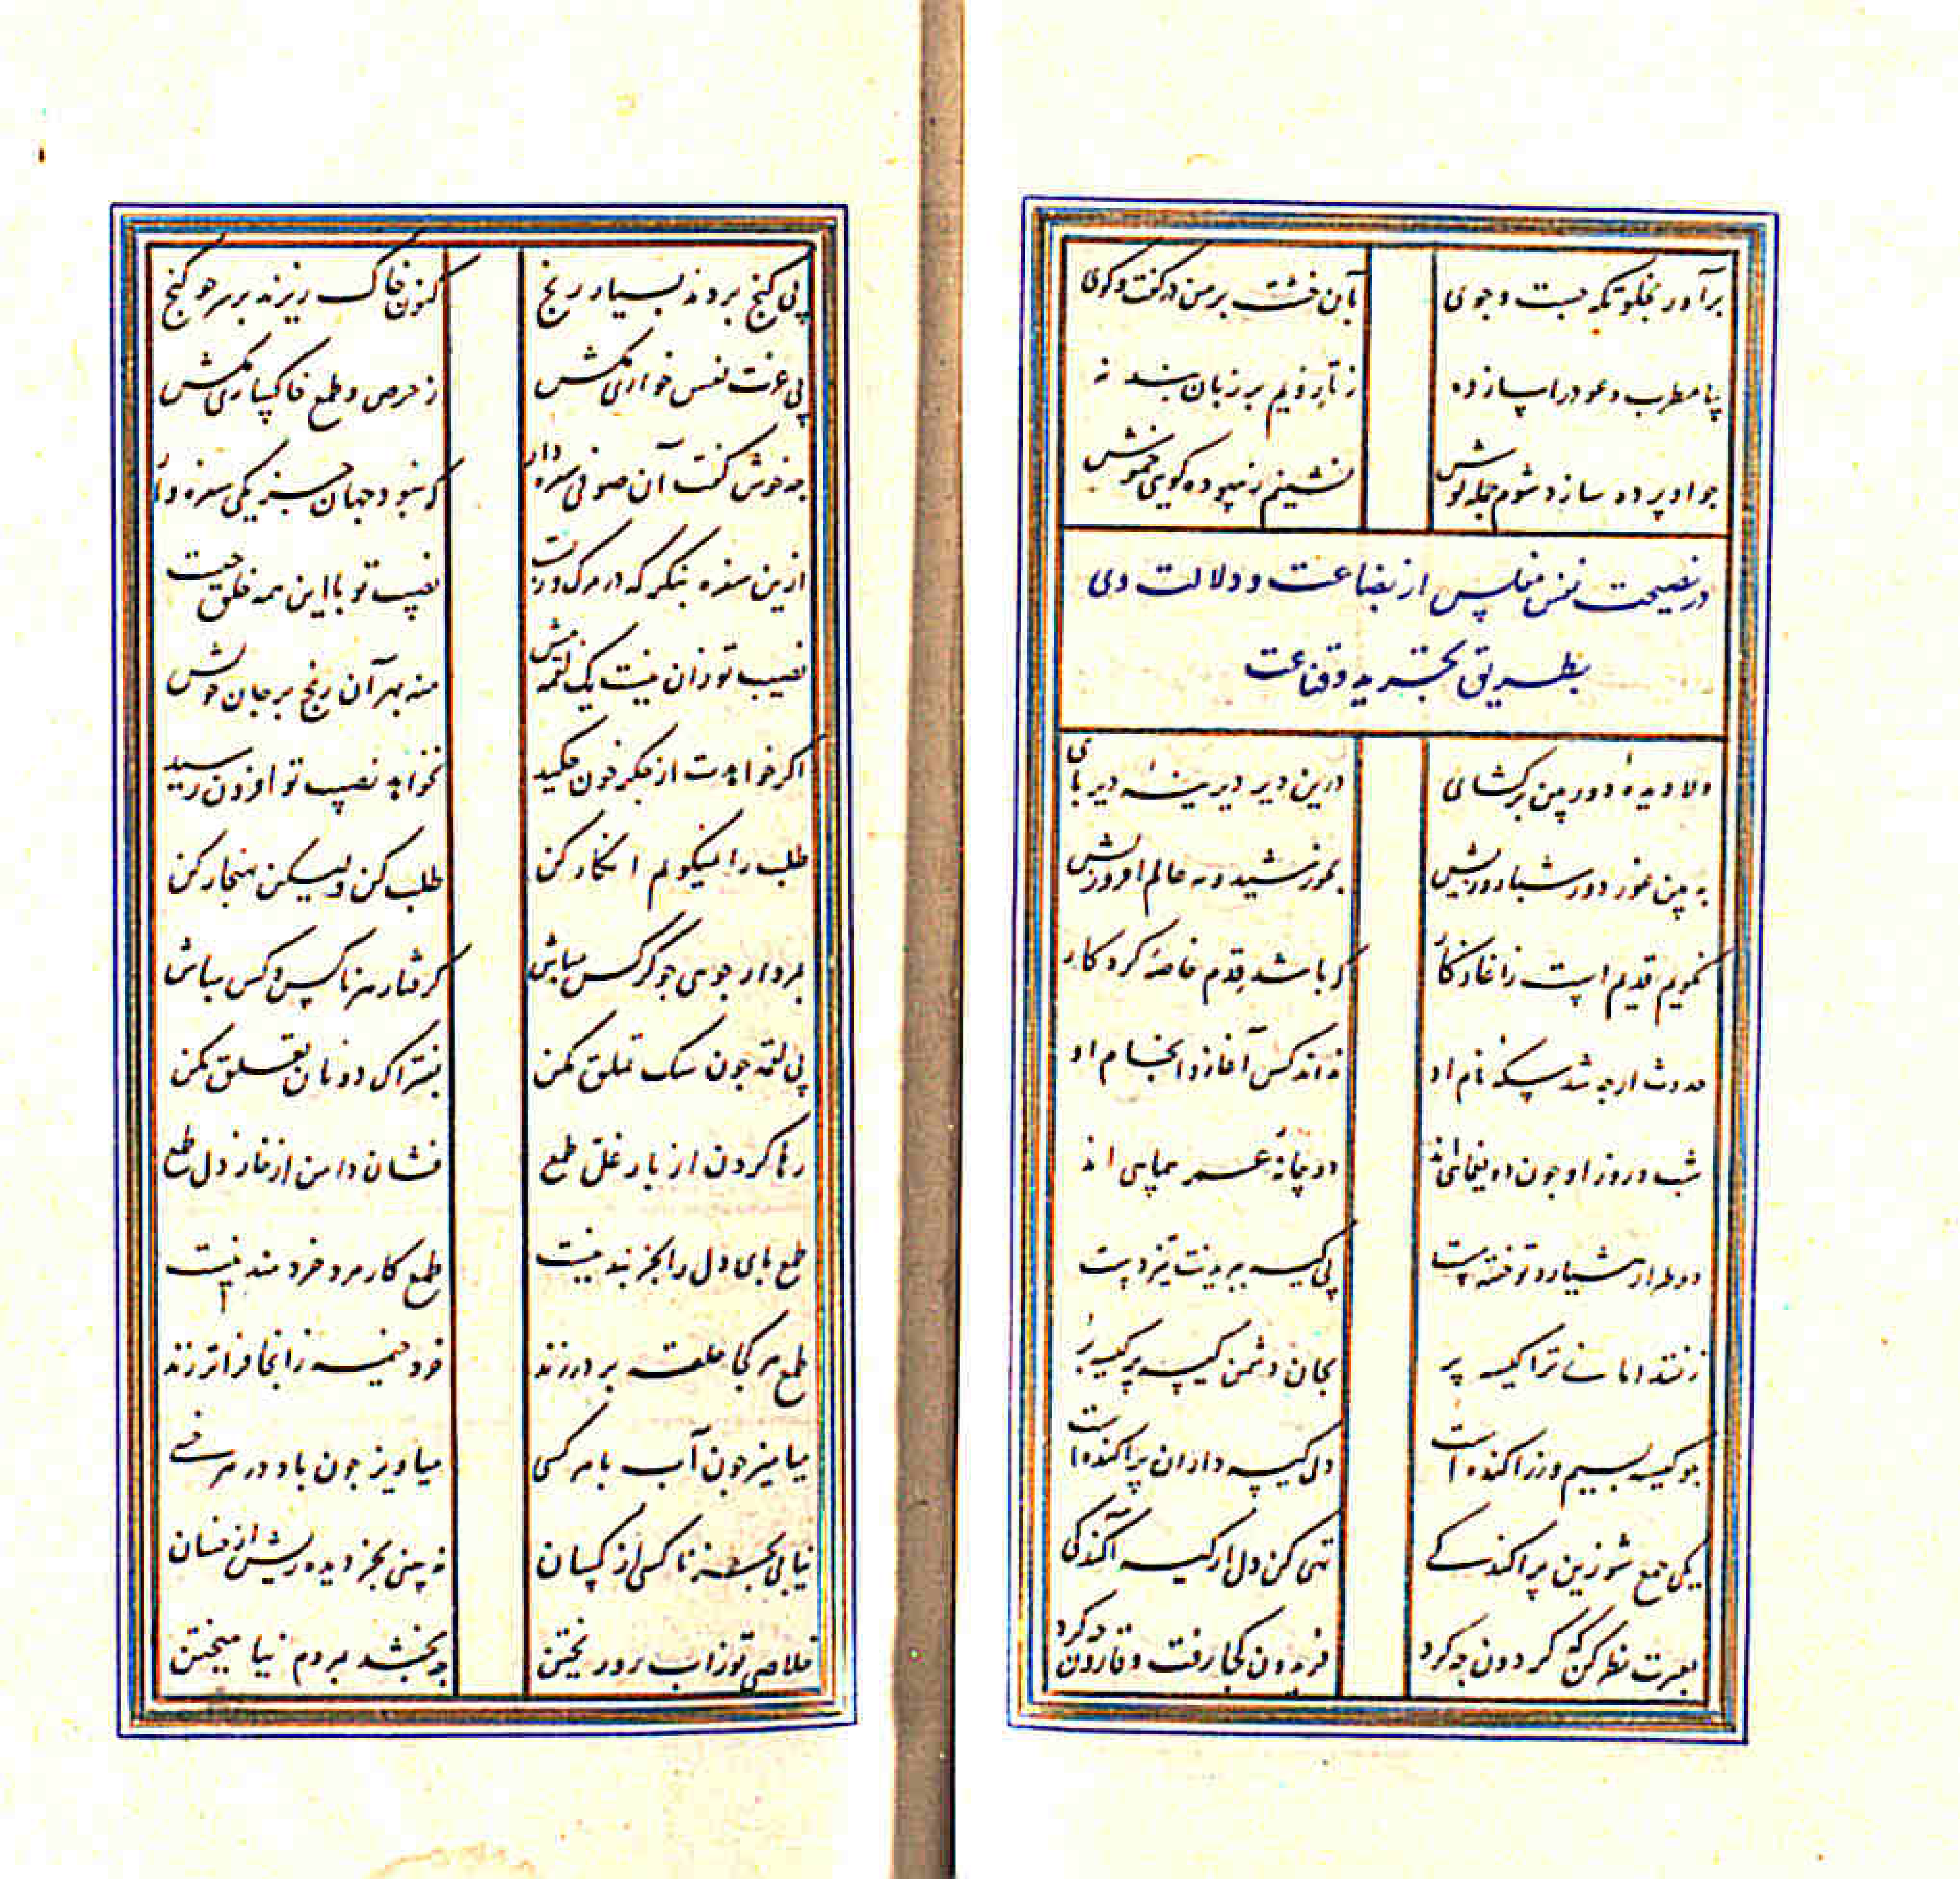 برآور بخلوتگه جست و جوی    بآن خشت بر من در گفت و گوی
بیا مطرب و عود را ساز ده    ز تار ویم بر زبان بند نه
جو او پرده سازد شوم جمله گوش    نشینم ز بیهوده گویی خموش
در نصیحت نفس مفلس از بضاعت و دلالت وی
بطریق تجرید و قناعت
دلا دیدهٔ دور بین برگشای    درین دیر دیرینهٔ دیر بای
به بین غور دور شباروزیش    بخورشید و مه عالم افروزیش
نگویم قدیم است ز آغاز کار    که باشد قدم خاصهٔ کردکار
حدوث ارچه شد سکهٔ نام او    نداند کس آغاز و انجام او
شب و روز او جون دو یغمایی اند    دو پیمانهٔ عمر پیمایی اند
دو طرار هشیار و تو خفته مست    پی کیسه ببریدنت تیز دست
زنند امانی ترا کیسه پر    بجان دشمن کیسه بر کیسه بر
جو کیسه بسیم و زر آکنده است    دل کیسه داران پراکنده است
یکی جمع شو زین پراکندگی    تهی کن دل از کیسه آکندگی
بعبرت نظر کن که گردون جه کرد    فریدون کجا رفت و قارون جه کرد
پی گنج بردند بسیار رنج    کنون خاک ریزند بر سر جو گنج
پی عزت نفس خواری مکش    ز حرص و طمع خاکساری مکش
جه خوش گفت آن صوفی سفره دار    که نبود جهان جز یکی سفره وار
ازین سفره بنگر که در مرگ و زیست    نصیب تو با این همه خلق جیست
نصیب تو زان نیست یک لقمه بیش    منه بهر آن رنج بر جان خویش
اگر خواهدت از جگر خون جکید    نخواهد نصیب تو افزون رسید
طلب را نمیگویم انکار کن    طلب کن ولیکن بهنجار کن
بمردار جویی جو کرکس مباش    گرفتار هر ناکس و کس مباش
پی لقمه جون سگ تملق مکن    بفتراک دونان تعلق مکن
رها گردن از بار غل طمع    فشان دامن از خار ذل طمع
طمع بای دل را بجز بند نیست    طمع کار مرد خردمند نیست
طمع هر کجا حلقه بر در زند    خرد خیمه ز آنجا فراتر زند
میامیز جون آب با هر کسی    میاویز جون باد در هر خسی
نیابی بجز ناکسی از کسان    نه بینی بجز دیده ریش از خسان
خلاصی تو ز آب رو ریختن    جه بخشد بمردم نیامیختن